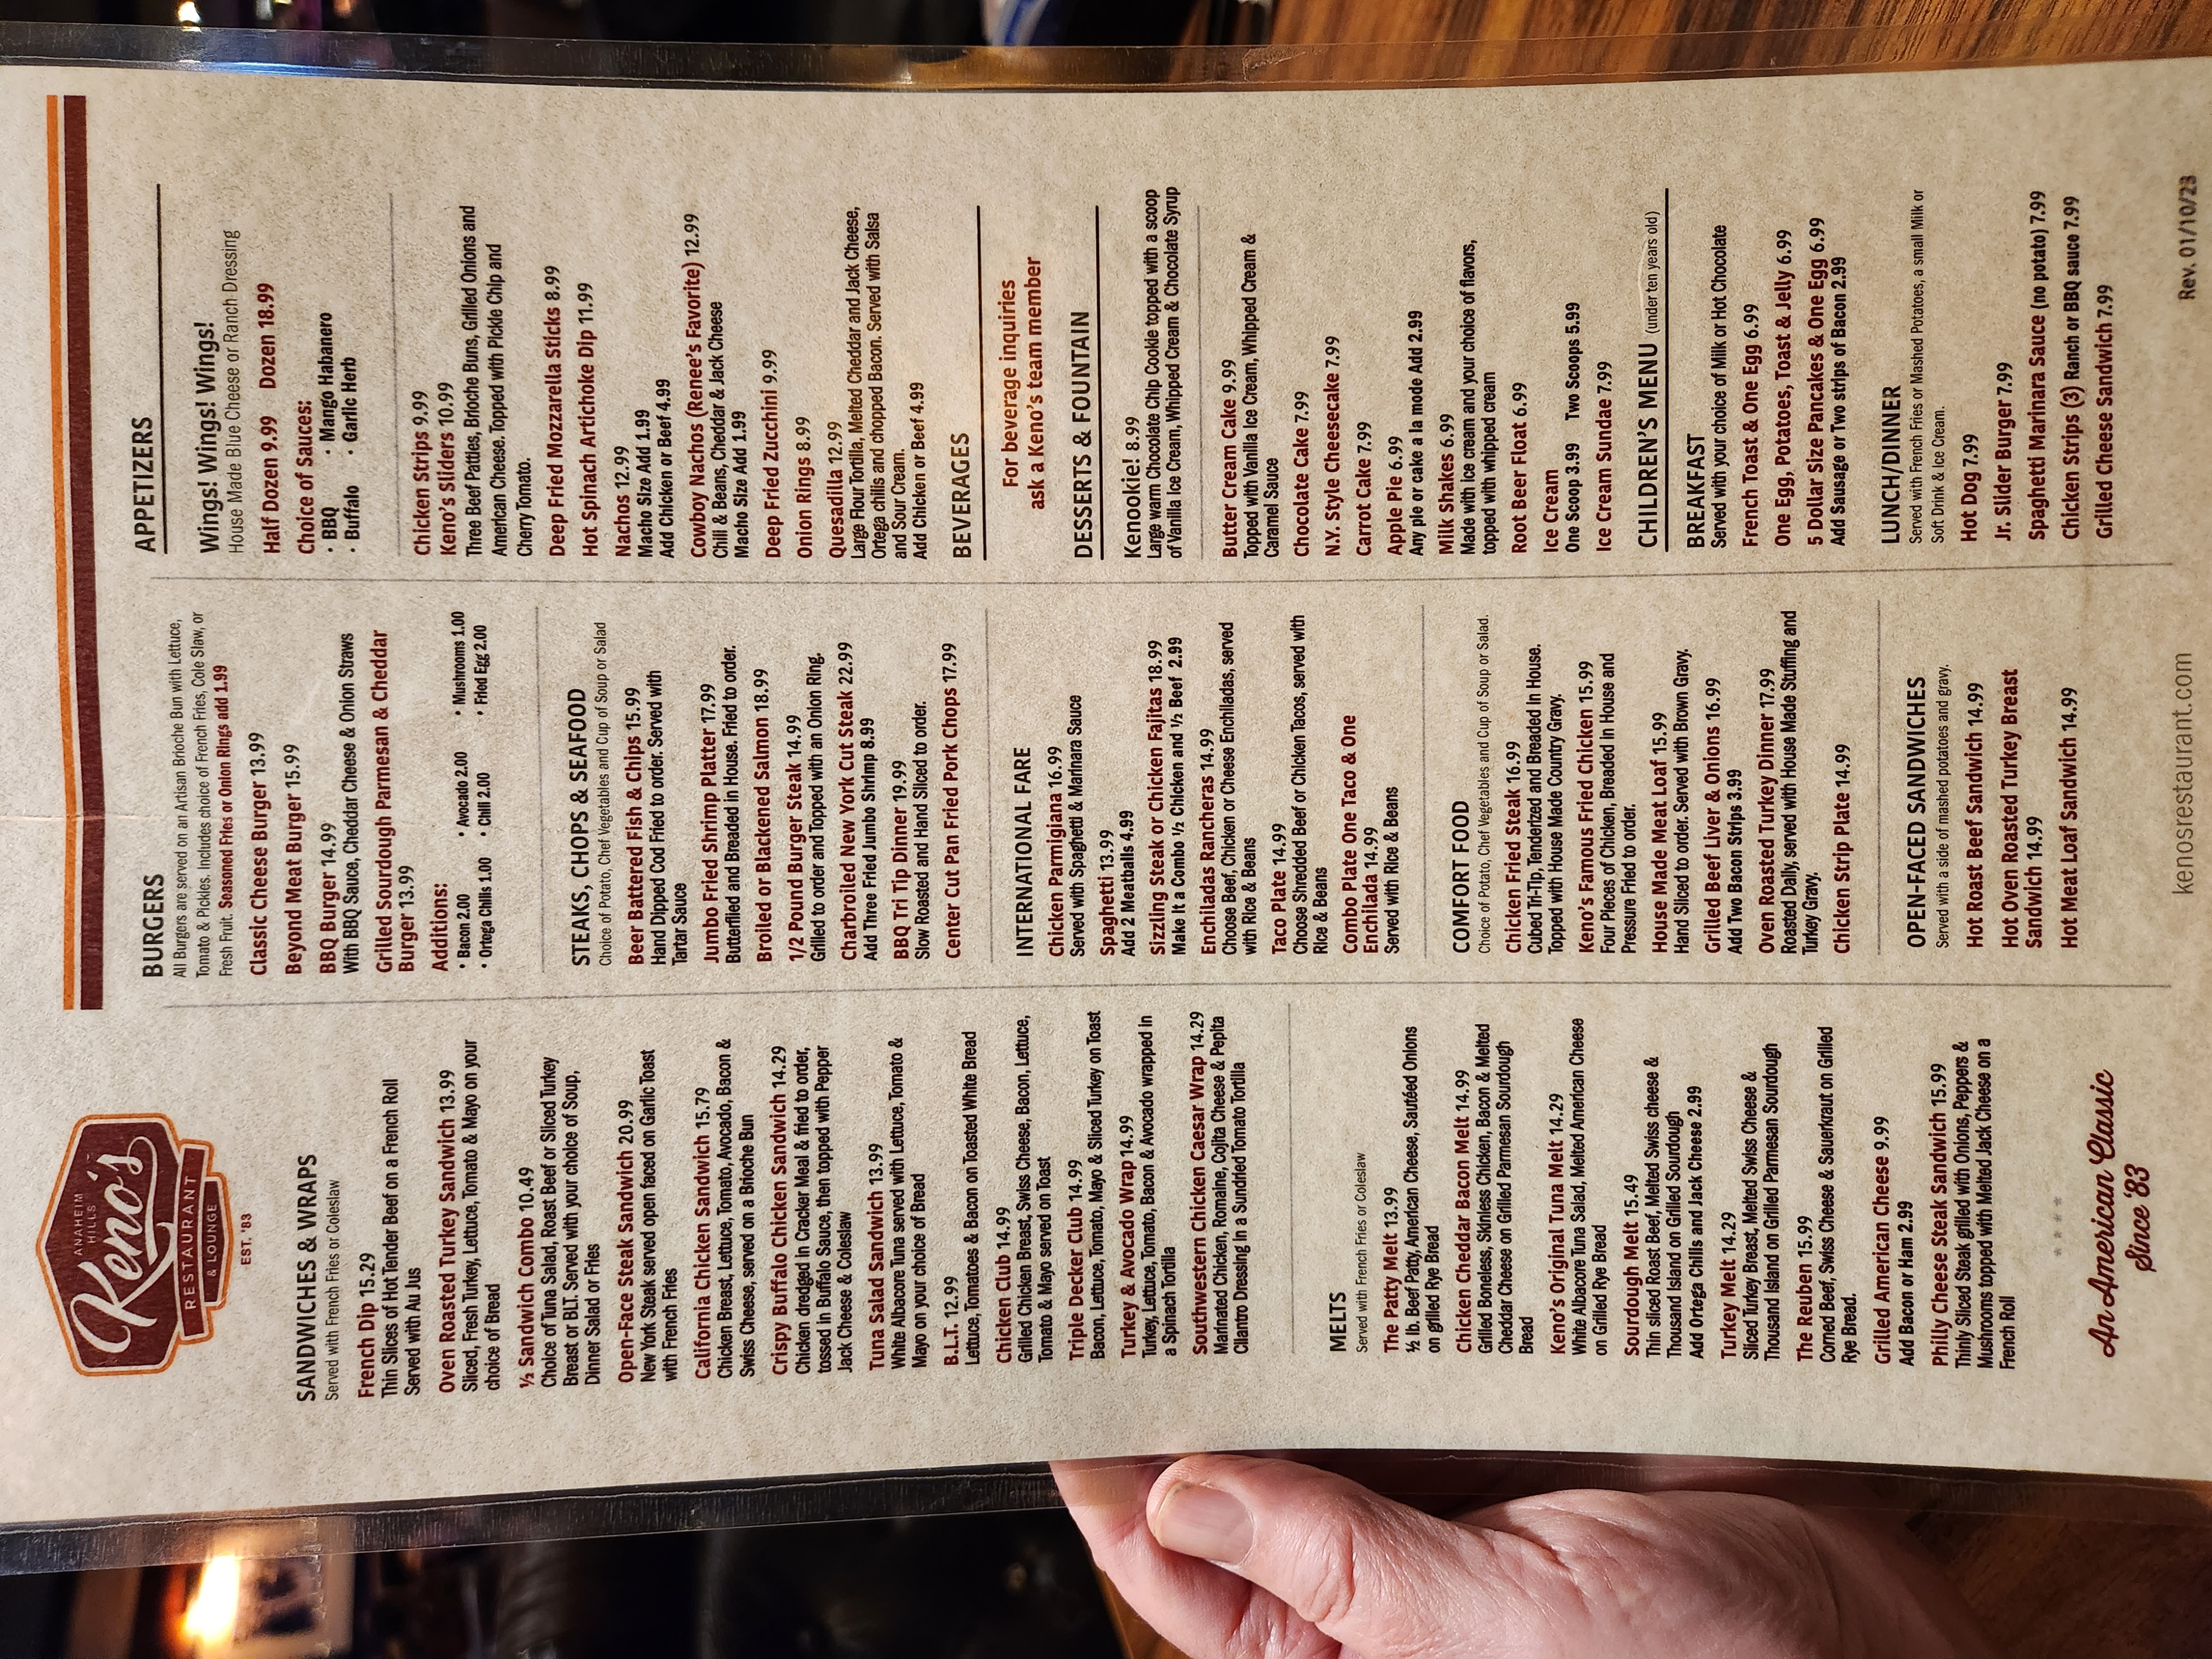 ANAHEIM
HILLS
Keno's
RESTAURANT
& LOUNGE
EST. '83
SANDWICHES & WRAPS
Served with French Fries or Coleslaw
French Dip 15.29
Thin Slices of Hot Tender Beef on a French Roll
Served with Au Jus
Oven Roasted Turkey Sandwich 13.99
Sliced, Fresh Turkey, Lettuce, Tomato & Mayo on your
choice of Bread
½ Sandwich Combo 10.49
Choice of Tuna Salad, Roast Beef or Sliced Turkey
Breast or BLT. Served with your choice of Soup,
Dinner Salad or Fries
Open-Face Steak Sandwich 20.99
New York Steak served open faced on Garlic Toast
with French Fries
California Chicken Sandwich 15.79
Chicken Breast, Lettuce, Tomato, Avocado, Bacon &
Swiss Cheese, served on a Brioche Bun
Crispy Buffalo Chicken Sandwich 14.29
Chicken dredged in Cracker Meal & fried to order,
tossed in Buffalo Sauce, then topped with Pepper
Jack Cheese & Coleslaw
Tuna Salad Sandwich 13.99
White Albacore Tuna served with Lettuce, Tomato &
Mayo on your choice of Bread
B.L.T. 12.99
Lettuce, Tomatoes & Bacon on Toasted White Bread
Chicken Club 14.99
Grilled Chicken Breast, Swiss Cheese, Bacon, Lettuce,
Tomato & Mayo served on Toast
Triple Decker Club 14.99
Bacon, Lettuce, Tomato, Mayo & Sliced Turkey on Toast
Turkey & Avocado Wrap 14.99
Turkey, Lettuce, Tomato, Bacon & Avocado wrapped in
a Spinach Tortilla
Southwestern Chicken Caesar Wrap 14.29
Marinated Chicken, Romaine, Cojita Cheese & Pepita
Cilantro Dressing in a Sundried Tomato Tortilla
MELTS
Served with French Fries or Coleslaw
The Patty Melt 13.99
½ lb. Beef Patty, American Cheese, Sautéed Onions
on grilled Rye Bread
Chicken Cheddar Bacon Melt 14.99
Grilled Boneless, Skinless Chicken, Bacon & Melted
Cheddar Cheese on Grilled Parmesan Sourdough
Bread
Keno's Original Tuna Melt 14.29
White Albacore Tuna Salad, Melted American Cheese
on Grilled Rye Bread
Sourdough Melt 15.49
Thin sliced Roast Beef, Melted Swiss cheese &
Thousand Island on Grilled Sourdough
Add Ortega Chilis and Jack Cheese 2.99
Turkey Melt 14.29
Sliced Turkey Breast, Melted Swiss Cheese &
Thousand Island on Grilled Parmesan Sourdough
The Reuben 15.99
Corned Beef, Swiss Cheese & Sauerkraut on Grilled
Rye Bread.
Grilled American Cheese 9.99
Add Bacon or Ham 2.99
Philly Cheese Steak Sandwich 15.99
Thinly Sliced Steak grilled with Onions, Peppers &
Mushrooms topped with Melted Jack Cheese on a
French Roll
An American Classic
Since '83
BURGERS
All Burgers are served on an Artisan Brioche Bun with Lettuce,
Tomato & Pickles. Includes choice of French Fries, Cole Slaw, or
Fresh Fruit. Seasoned Fries or Onion Rings add 1.99
Classic Cheese Burger 13.99
Beyond Meat Burger 15.99
BBQ Burger 14.99
With BBQ Sauce, Cheddar Cheese & Onion Straws
Grilled Sourdough Parmesan & Cheddar
Burger 13.99
Additions:
• Bacon 2.00 • Avocado 2.00 • Mushrooms 1.00
• Ortega Chilis 1.00 • Chili 2.00 • Fried Egg 2.00
STEAKS, CHOPS & SEAFOOD
Choice of Potato, Chef Vegetables and Cup of Soup or Salad
Beer Battered Fish & Chips 15.99
Hand Dipped Cod Fried to order. Served with
Tartar Sauce
Jumbo Fried Shrimp Platter 17.99
Butterflied and Breaded in House. Fried to order.
Broiled or Blackened Salmon 18.99
1/2 Pound Burger Steak 14.99
Grilled to order and Topped with an Onion Ring.
Charbroiled New York Cut Steak 22.99
Add Three Fried Jumbo Shrimp 8.99
BBQ Tri Tip Dinner 19.99
Slow Roasted and Hand Sliced to order.
Center Cut Pan Fried Pork Chops 17.99
INTERNATIONAL FARE
Chicken Parmigiana 16.99
Served with Spaghetti & Marinara Sauce
Spaghetti 13.99
Add 2 Meatballs 4.99
Sizzling Steak or Chicken Fajitas 18.99
Make It a Combo ½ Chicken and ½ Beef 2.99
Enchiladas Rancheras 14.99
Choose Beef, Chicken or Cheese Enchiladas, served
with Rice & Beans
Taco Plate 14.99
Choose Shredded Beef or Chicken Tacos, served with
Rice & Beans
Combo Plate One Taco & One
Enchilada 14.99
Served with Rice & Beans
COMFORT FOOD
Choice of Potato, Chef Vegetables and Cup of Soup or Salad.
Chicken Fried Steak 16.99
Cubed Tri-Tip, Tenderized and Breaded in House.
Topped with House Made Country Gravy.
Keno's Famous Fried Chicken 15.99
Four Pieces of Chicken, Breaded In House and
Pressure Fried to order.
House Made Meat Loaf 15.99
Hand Sliced to order. Served with Brown Gravy.
Grilled Beef Liver & Onions 16.99
Add Two Bacon Strips 3.99
Oven Roasted Turkey Dinner 17.99
Roasted Daily, served with House Made Stuffing and
Turkey Gravy.
Chicken Strip Plate 14.99
OPEN-FACED SANDWICHES
Served with a side of mashed potatoes and gravy.
Hot Roast Beef Sandwich 14.99
Hot Oven Roasted Turkey Breast
Sandwich 14.99
Hot Meat Loaf Sandwich 14.99
kenosrestaurant.com
APPETIZERS
Wings! Wings! Wings!
House Made Blue Cheese or Ranch Dressing
Half Dozen 9.99 Dozen 18.99
Choice of Sauces:
• BBQ • Mango Habanero
• Buffalo • Garlic Herb
Chicken Strips 9.99
Keno's Sliders 10.99
Three Beef Patties, Brioche Buns, Grilled Onions and
American Cheese. Topped with Pickle Chip and
Cherry Tomato.
Deep Fried Mozzarella Sticks 8.99
Hot Spinach Artichoke Dip 11.99
Nachos 12.99
Macho Size Add 1.99
Add Chicken or Beef 4.99
Cowboy Nachos (Renee's Favorite) 12.99
Chili & Beans, Cheddar & Jack Cheese
Macho Size Add 1.99
Deep Fried Zucchini 9.99
Onion Rings 8.99
Quesadilla 12.99
Large Flour Tortilla, Melted Cheddar and Jack Cheese,
Ortega chilis and chopped Bacon. Served with Salsa
and Sour Cream.
Add Chicken or Beef 4.99
BEVERAGES
For beverage inquiries
ask a Keno's team member
DESSERTS & FOUNTAIN
Kenookie! 8.99
Large warm Chocolate Chip Cookie topped with a scoop
of Vanilla Ice Cream, Whipped Cream & Chocolate Syrup
Butter Cream Cake 9.99
Topped with Vanilla Ice Cream, Whipped Cream &
Caramel Sauce
Chocolate Cake 7.99
N.Y. Style Cheesecake 7.99
Carrot Cake 7.99
Apple Pie 6.99
Any pie or cake a la mode Add 2.99
Milk Shakes 6.99
Made with ice cream and your choice of flavors,
topped with whipped cream
Root Beer Float 6.99
Ice Cream
One Scoop 3.99 Two Scoops 5.99
Ice Cream Sundae 7.99
CHILDREN'S MENU (under ten years old)
BREAKFAST
Served with your choice of Milk or Hot Chocolate
French Toast & One Egg 6.99
One Egg, Potatoes, Toast & Jelly 6.99
5 Dollar Size Pancakes & One Egg 6.99
Add Sausage or Two strips of Bacon 2.99
LUNCH/DINNER
Served with French Fries or Mashed Potatoes, a small Milk or
Soft Drink & Ice Cream.
Hot Dog 7.99
Jr. Slider Burger 7.99
Spaghetti Marinara Sauce (no potato) 7.99
Chicken Strips (3) Ranch or BBQ sauce 7.99
Grilled Cheese Sandwich 7.99
Rev. 01/10/23